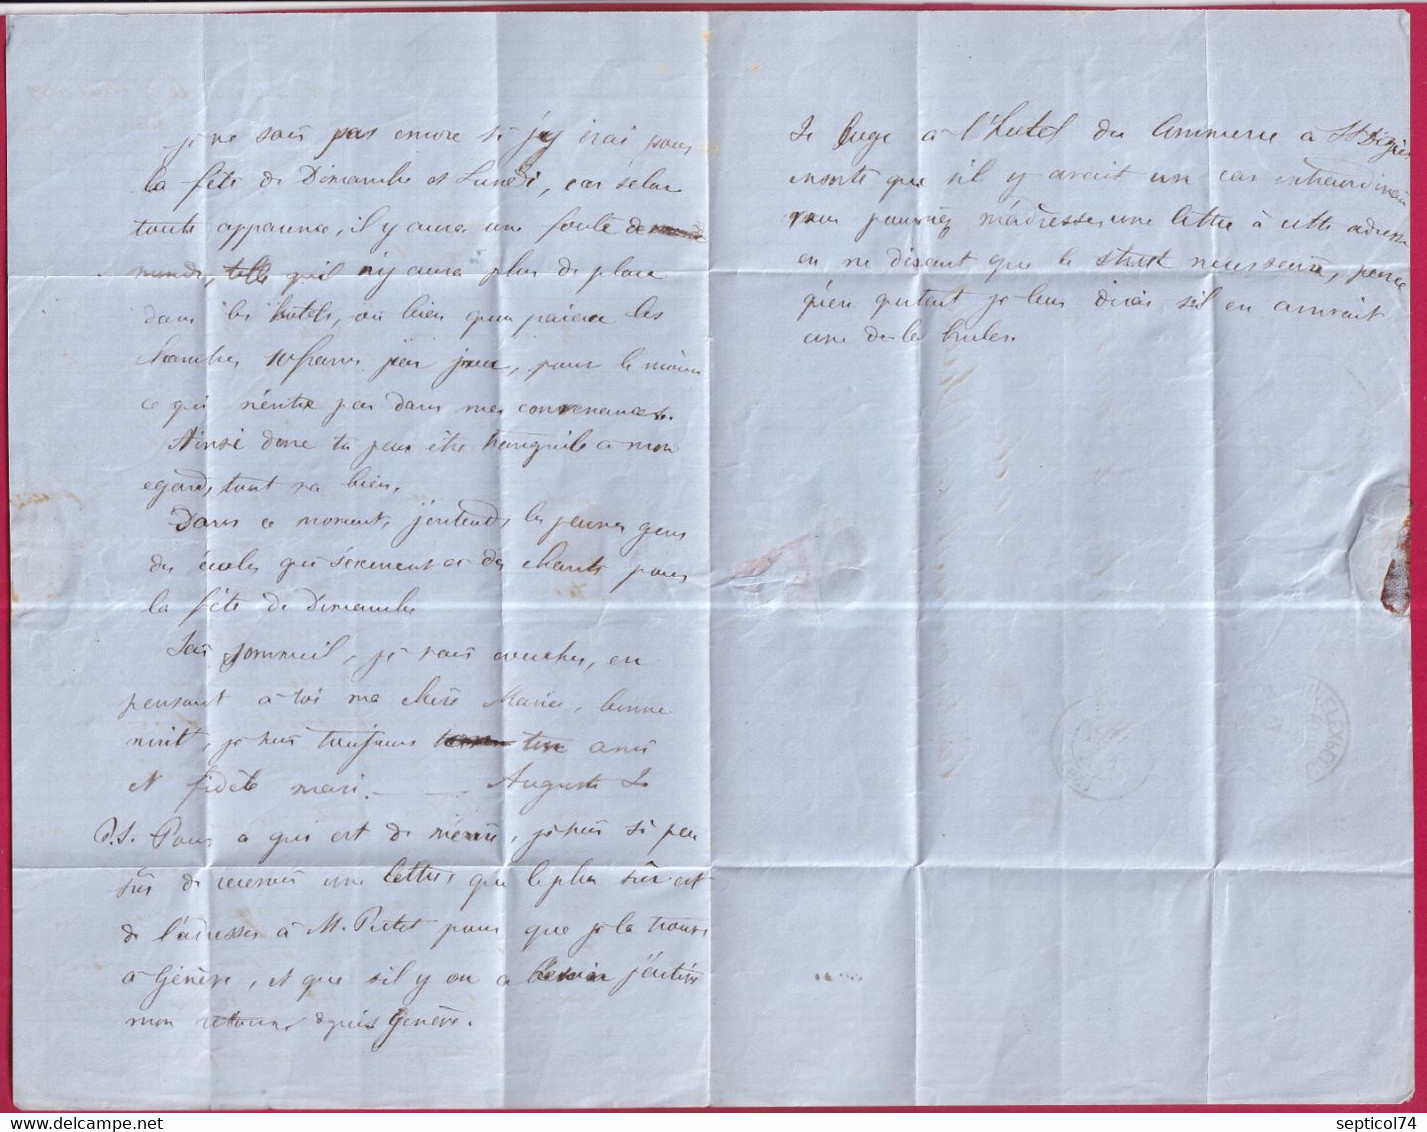 je ne sais pas encore si j'y irai pour
la fête de Dimanche et Lundi, car selon
toute apparence, il y aura une foule de
monde, telle qu'il n'y aura plus de place
dans les hotels, ou bien qu'on paiera les
chambres 10 francs par jour, pour le moins
ce qui n'entre pas dans mes convenances.
Ainsi donc tu peux être tranquile à mon
egard, tout va bien.
Dans ce moment, j'entends les jeunes gens
des écoles qui s'exercent à des chants pour
la fête de Dimanche
J'ai sommeil, je vais coucher, en
pensant à toi ma chère Marie, bonne
nuit, je suis toujours ton ami
et fidèle mari. Auguste
P.S. Pour ce qui est de m'écrire, je suis si peu
sûr de recevoir une lettre, que le plus sûr est
de l'adresser à M. Pictet pour que je la trouve
à Genève, et que s'il y en a besoin j'entire
mon retour depuis Genève.
Je loge à l'hotel du Commerce à St Digier
ensorte que s'il y avait un cas extraordinaire
vous pourriez m'adresser une lettre à cette adresse
en ne disant que le strict necessaire, parce
qu'en partant je leur dirai s'il en arrivait
une de les bruler.
septicol74